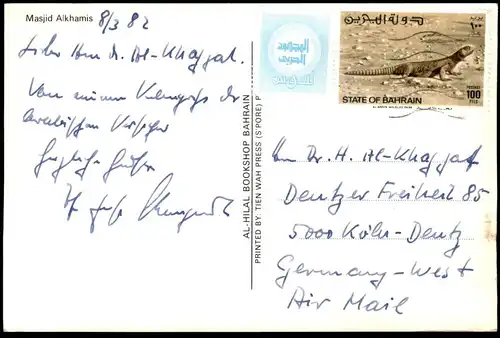 Masjid Alkhamis
8/3 82
Lieber Herr Dr. Al-Khayyat.
Von einem
der
arabischen
herzliche Grüße
Ihr
AL-HILAL BOOKSHOP BAHRAIN
PRINTED BY TIEN WAH PRESS (S'PORE) P
المجهود
الحربي
دولة البحرين
١٠٠
STATE OF BAHRAIN
POSTAGE
100
FILS
Herrn Dr. H. Al-Khayyat
Deutzer Freiheit 85
5000 Köln-Deutz
Germany-West
Air Mail